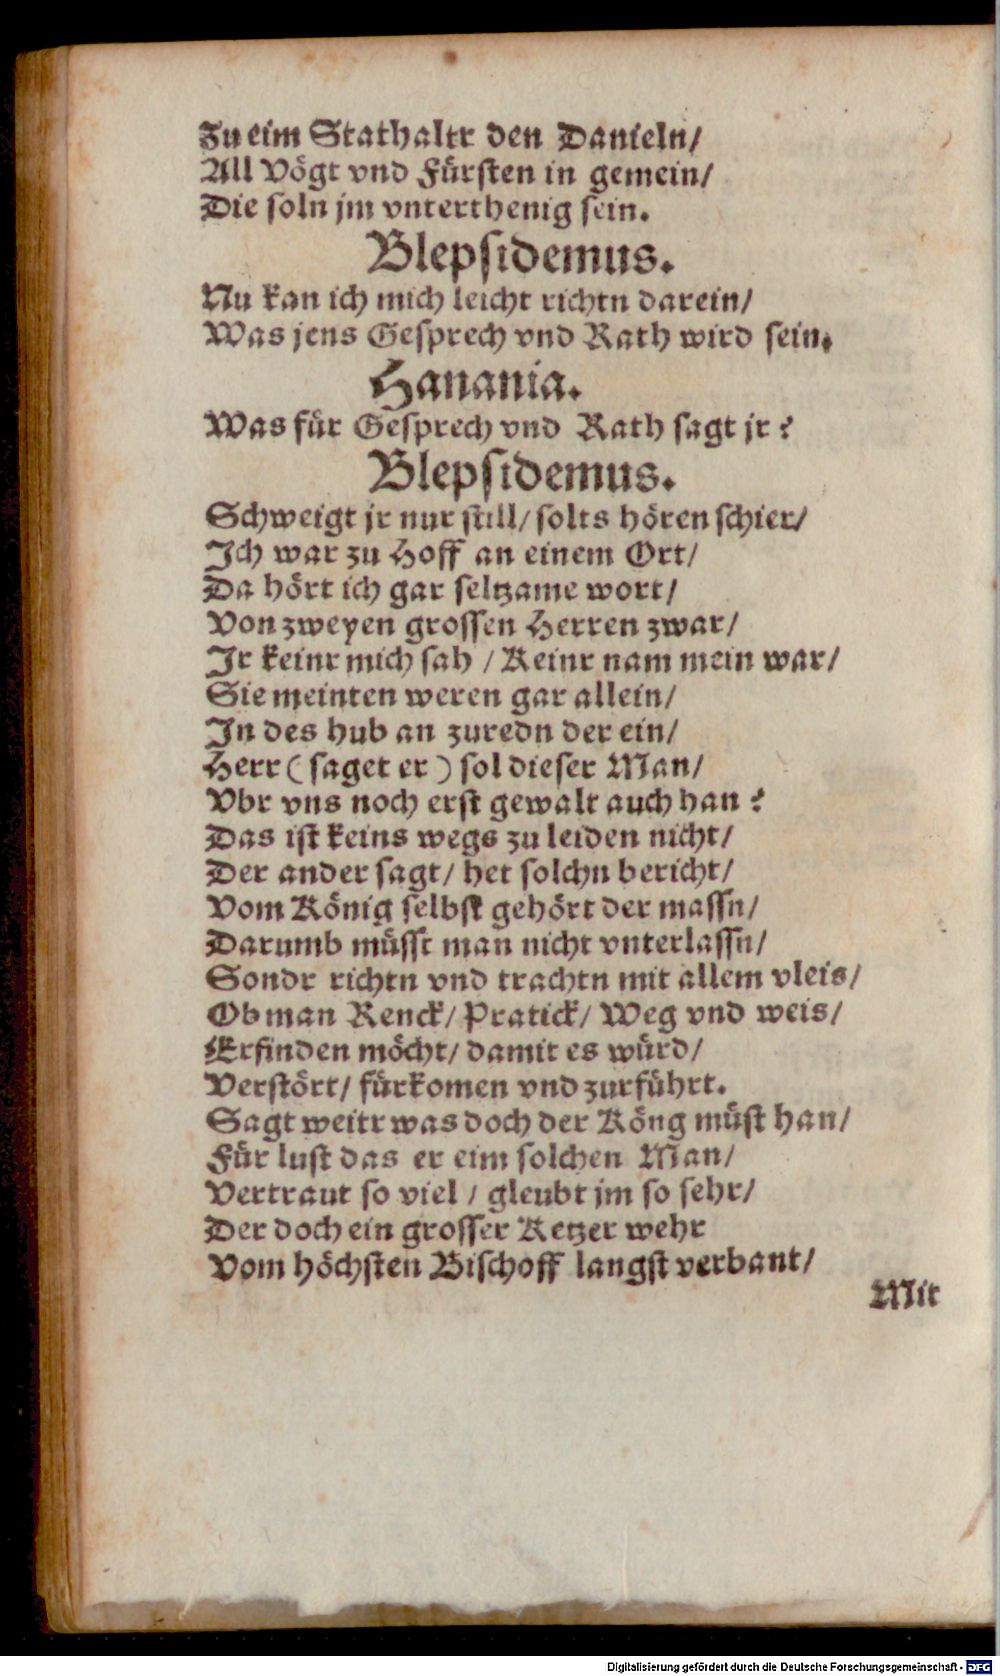 Zu eim Stathaltr den Danieln/
All Vögt vnd Fürsten in gemein/
Die soln jm vnterthenig sein.
Blepsidemus.
Nu kan ich mich leicht richtn darein/
Was jens Gesprech vnd Rath wird sein.
Hanania.
Was für Gesprech vnd Rath sagt jr?
Blepsidemus.
Schweigt jr nur still/ solts hören schier/
Ich war zu Hoff an einem Ort/
Da hört ich gar seltzame wort/
Von zweyen grossen Herren zwar/
Ir keinr mich sah / Keinr nam mein war/
Sie meinten weren gar allein/
In des hub an zuredn der ein/
Herr (saget er) sol dieser Man/
Vbr vns noch erst gewalt auch han?
Das ist keins wegs zu leiden nicht/
Der ander sagt/ het solchn bericht/
Vom König selbst gehört der massn/
Darumb müsst man nicht vnterlassn/
Sondr richtn vnd trachtn mit allem vleis/
Ob man Renck/ Pratick/ Weg vnd weis/
Erfinden möcht/ damit es würd/
Verstört/ fürkomen vnd zurführt.
Sagt weitr was doch der Köng müst han/
Für lust das er eim solchen Man/
Vertraut so viel / gleubt jm so sehr/
Der doch ein grosser Ketzer wehr
Vom höchsten Bischoff langst verbant/
Mit
Digitalisierung gefördert durch die Deutsche Forschungsgemeinschaft - DFG